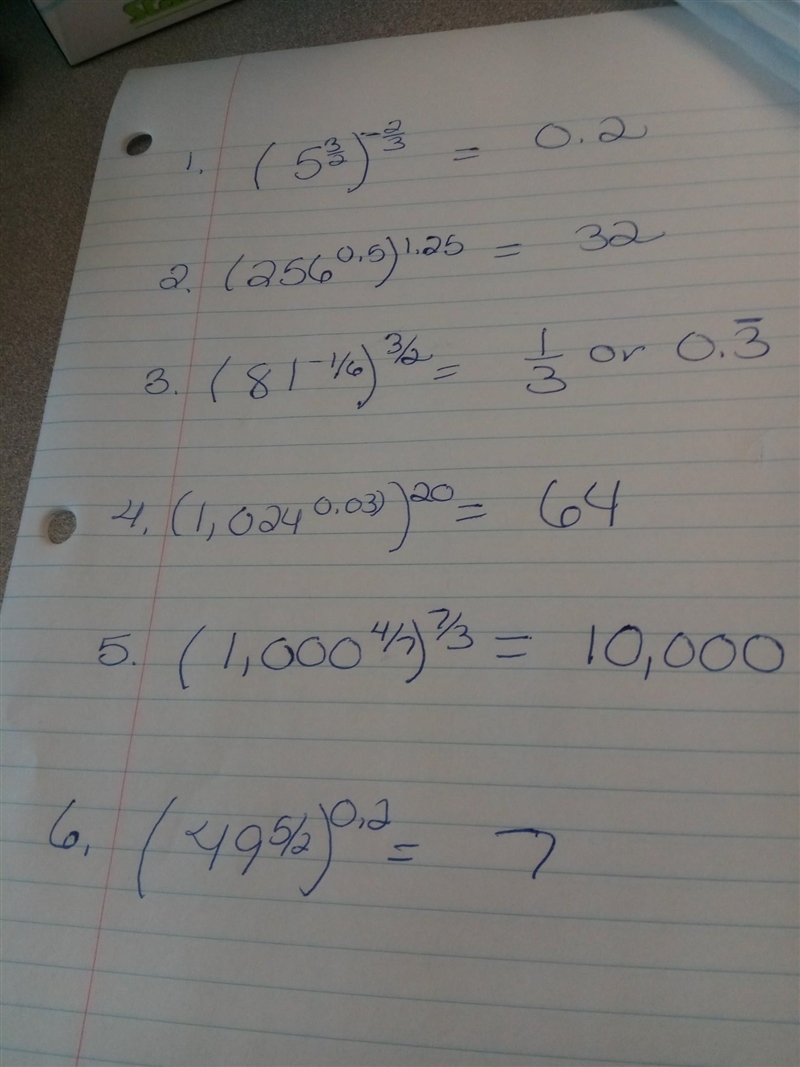 1. (5^(3/2))^(-2/3) = 0.2
2. (256^0.5)^1.25 = 32
3. (81^-1/6)^3/2 = 1/3 or 0.3̅
4. (1,024^0.03))^20 = 64
5. (1,000^4/7)^7/3 = 10,000
6. (49^5/2)^0.2 = 7